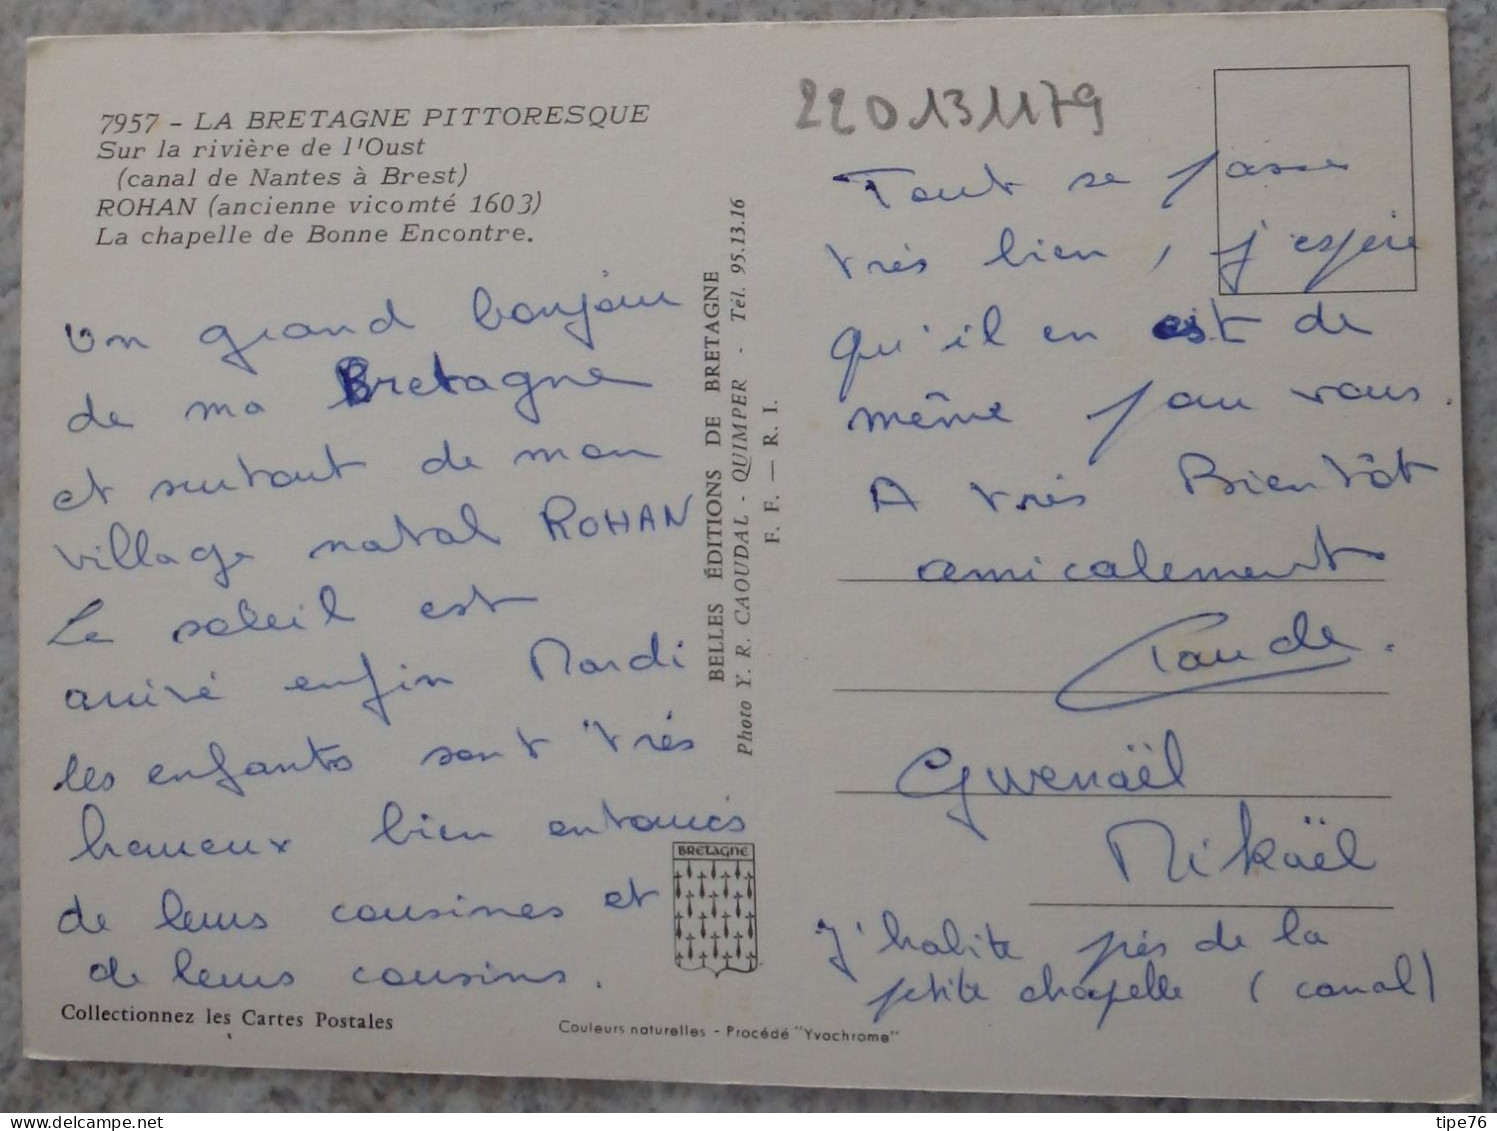 7957 - LA BRETAGNE PITTORESQUE
Sur la rivière de l'Oust
(canal de Nantes à Brest)
ROHAN (ancienne vicomté 1603)
La chapelle de Bonne Encontre.
Un grand bonjour
de ma Bretagne
et surtout de mon
village natal ROHAN
Le soleil est
arrivé enfin Mardi
les enfants sont très
heureux bien entourés
de leurs cousines et
de leurs cousins.
Collectionnez les Cartes Postales
BELLES ÉDITIONS DE BRETAGNE
Photo Y. R. CAOUDAL - QUIMPER - Tél. 95.13.16
F. F. — R. I.
BRETAGNE
Couleurs naturelles - Procédé "Yvochrome"
220131179
Tout se passe
très bien, j'espère
qu'il en est de
même pour vous.
A très Bientôt
amicalement
Claude.
Gwenaël
Mikaël
J'habite près de la
petite chapelle (canal)
tipe76